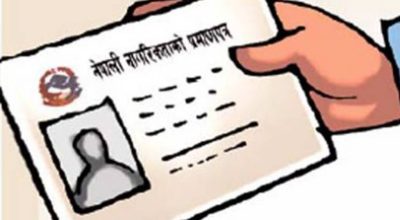 नेपाली नागरिकताको प्रमाणपत्र